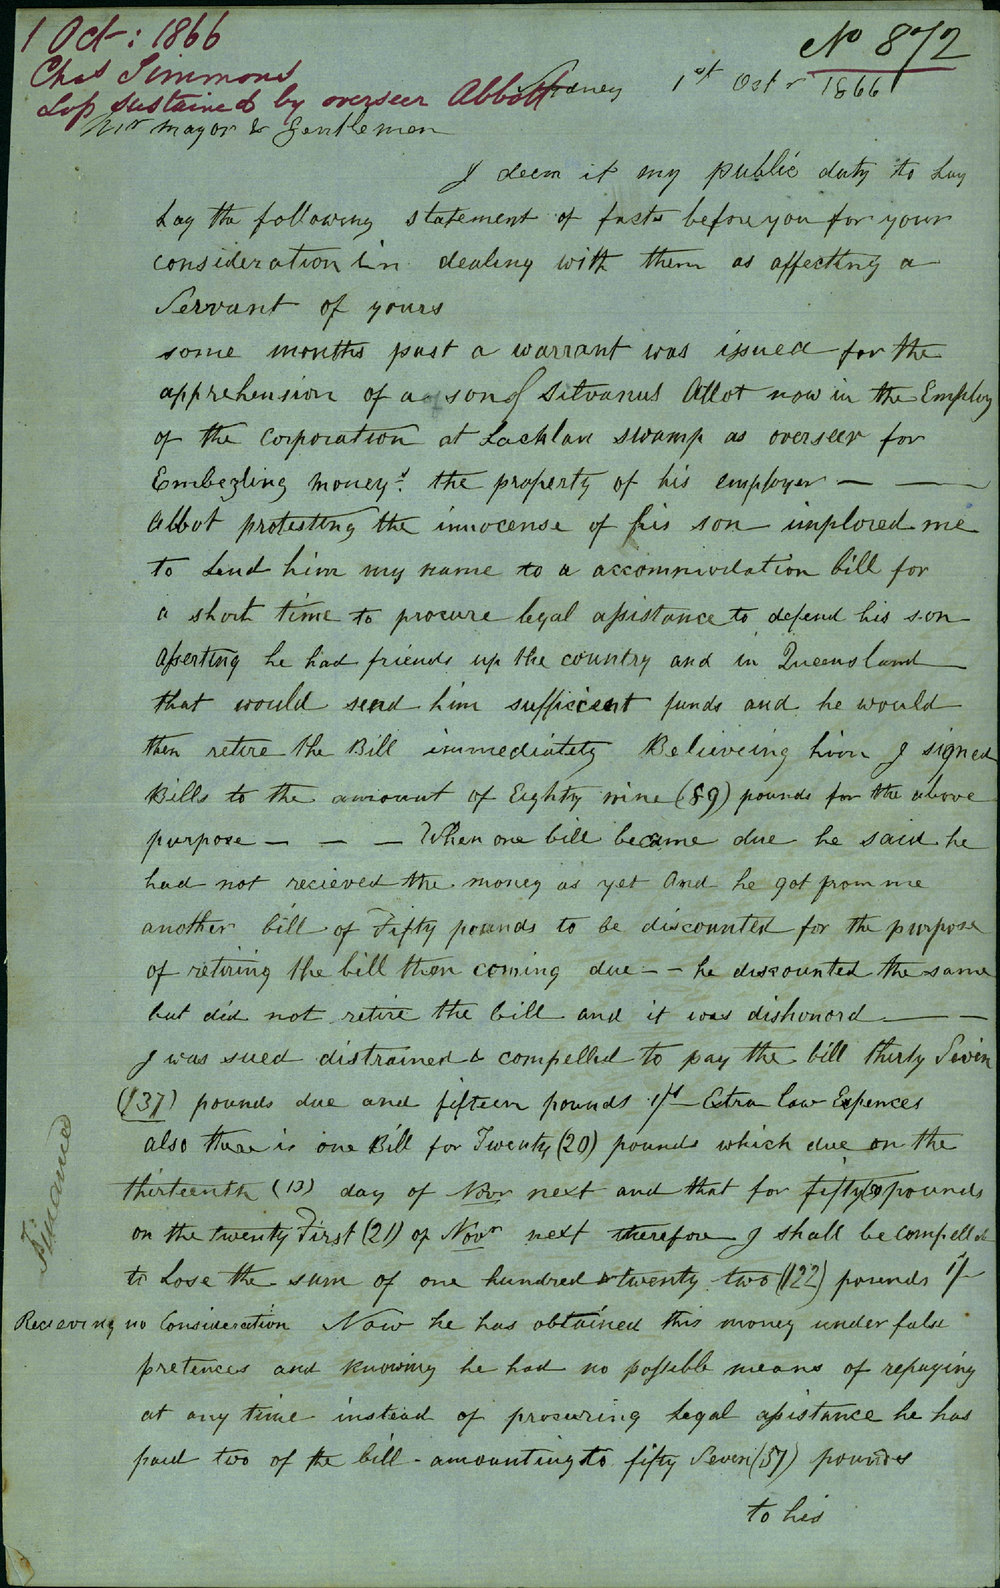 1 Oct: 1866
No 872
Chas Simmons
Loss sustained by overseer Abbott
Sydney 1st Octr 1866
Mr Mayor & Gentlemen
I deem it my public duty to Lay
Lay the following statement of facts before you for your
consideration in dealing with them as affecting a
Servant of yours
some months past a warrant was issued for the
apprehension of a son of Silvanus Abbot now in the Employ
of the Corporation at Lachlan swamp as overseer for
Embezling moneys. the property of his employer — —
Abbot protesting the innocense of his son implored me
to Lend him my name to a accommodation bill for
a short time to procure legal assistance to defend his son
Asserting he had friends up the country and in Queensland
that would send him sufficient funds and he would
then retire the Bill immediately Believeing him I signed
Bills to the amount of Eighty nine (89) pounds for the above
purpose — — — When one bill became due he said he
had not recieved the money as yet And he got from me
another bill of Fifty pounds to be discounted for the purpose
of retiring the bill then coming due — — he discounted the same
but did not retire the bill and it was dishonord — —
I was sued distrained & compelled to pay the bill thirty Seven
(37) pounds due and fifteen pounds 1/- Extra law Expences
also there is one Bill for Twenty (20) pounds which due on the
thirteenth (13) day of Novr next and that for fifty (50) pounds
on the twenty First (21) of Novr next therefore I shall be compelled
to Lose the sum of one hundred & twenty two (122) pounds 1/-
Recieving no Consideration Now he has obtained this money under false
pretences and knowing he had no possible means of repaying
at any time instead of procuring Legal assistance he has
paid two of the bill - amounting to fifty Seven (57) pounds
to his
Finance